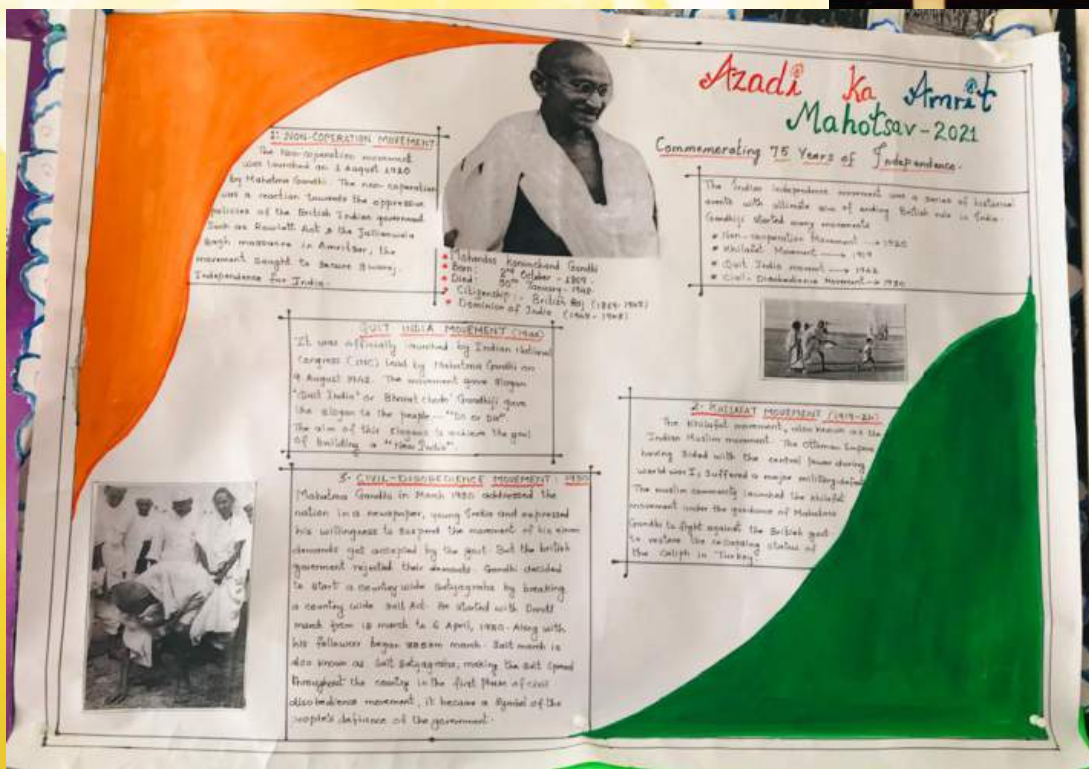 Azadi Ka Amrit
Mahotsav-2021
Commemorating 75 Years of Independence.
The Indian independence movement was a series of historical
events with ultimate aim of ending British rule in India.
Gandhiji started many movements
Non-cooperation Movement → 1920
Khilafat Movement → 1919
Quit India movment → 1942
Civil-Disobedience Movement → 1930
1: NON-COPERATION MOVEMENT
The Non-coperation movement
was launched on 1 August 1920
by Mahatma Gandhi. The non-coperation
was a reaction towards the oppressive
policies of the British Indian government
Such as Rowlatt Act & the Jallianwala
Bagh massacre in Amritsar, the
movement sought to secure Swaraj,
Independence for India.
Mohandas Karamchand Gandhi
Born: 2nd October - 1869
Died: 30th January - 1948
Citizenship:- British Raj (1869-1947)
Dominion of India (1947-1948)
QUIT INDIA MOVEMENT
It was officially launched by Indian National
Congress (INC) lead by Mahatma Gandhi on
9 August 1942. The movement gave slogan
"Quit India" or Bharat chodo' Gandhiji gave
the slogan to the people - "Do or Die".
The aim of this slogans to achieve the goal
of building a "New India".
2- KHILAFAT MOVEMENT (1919-24)
The Khilafat movement, also known as the
Indian Muslim movement. The Ottoman Empire
having sided with the central power during
world war I, suffered a major military defeat
The muslim community launched the khilafat
movement under the guidance of Mahatma
Gandhi to fight against the British govt
to restore the status of
the caliph in Turkey.
3- CIVIL-DISOBEDIENCE MOVEMENT: 1930
Mahatma Gandhi in March 1930 addressed the
nation in a newspaper, young India and expressed
his willingness to suspend the movement of his
demands get accepted by the govt. But the british
goverment rejected their demands. Gandhi decided
to start a country wide Satyagraha by breaking
a country wide salt Act. He started with Dandi
march from 12 march to 6 April, 1930. Along with
his follower began march. Salt march is
also known as Salt Satyagraha, making the salt spread
throughout the country in the first phase of civil
disobedience movement, it became a symbol of the
people's defiance of the government.